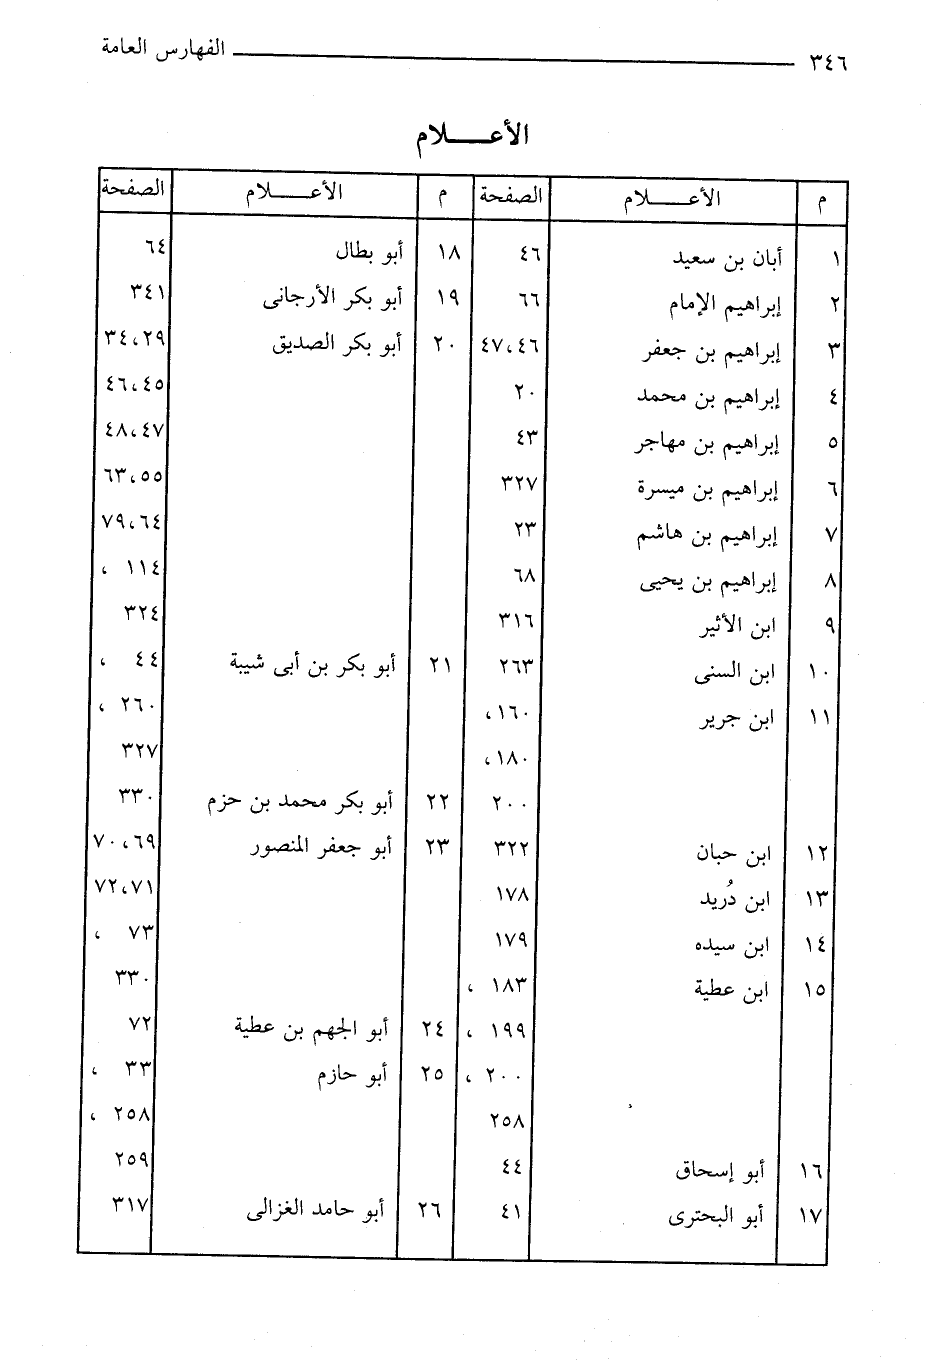 ٣٤٦ الفهارس العامة
الأعـــــلام
م الأعـــــلام الصفحة م الأعـــــلام الصفحة
١ أبان بن سعيد ٤٦ ١٨ أبو بطال ٦٤
٢ إبراهيم الإمام ٦٦ ١٩ أبو بكر الأرجانى ٣٤١
٣ إبراهيم بن جعفر ٤٧،٤٦ ٢٠ أبو بكر الصديق ٣٤،٢٩
٤ إبراهيم بن محمد ٢٠ ٤٦،٤٥
٥ إبراهيم بن مهاجر ٤٣ ٤٨،٤٧
٦ إبراهيم بن ميسرة ٣٢٧ ٦٣،٥٥
٧ إبراهيم بن هاشم ٢٣ ٧٩،٦٤
٨ إبراهيم بن يحيى ٦٨ ١١٤ ،
٩ ابن الأثير ٣١٦ ٣٢٤
١٠ ابن السنى ٢٦٣ ٢١ أبو بكر بن أبى شيبة ٤٤ ،
١١ ابن جرير ١٦٠، ٢٦٠ ،
١٨٠، ٣٢٧
٢٠٠ ٢٢ أبو بكر محمد بن حزم ٣٣٠
١٢ ابن حبان ٣٢٢ ٢٣ أبو جعفر المنصور ٧٠،٦٩
١٣ ابن دُريد ١٧٨ ٧٢،٧١
١٤ ابن سيده ١٧٩ ٧٣ ،
١٥ ابن عطية ١٨٣ ، ٣٣٠
١٩٩ ، ٢٤ أبو الجهم بن عطية ٧٢
٢٠٠ ، ٢٥ أبو حازم ٣٣ ،
٢٥٨ ٢٥٨ ،
١٦ أبو إسحاق ٤٤ ٢٥٩
١٧ أبو البحترى ٤١ ٢٦ أبو حامد الغزالى ٣١٧